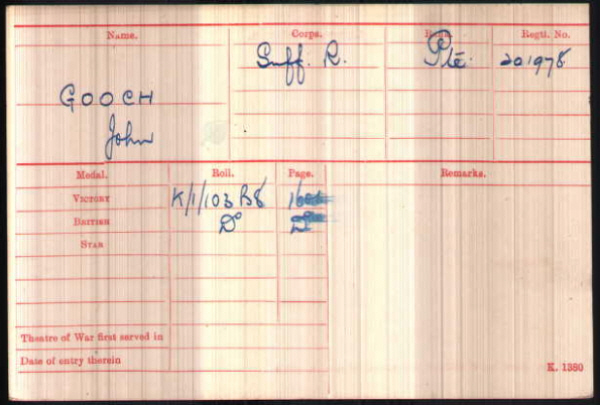 Name. Corps. Rank. Regtl. No.
Suff. R. Pte. 201978
GOOCH
John
Medal. Roll. Page. Remarks.
VICTORY K/1/103 B8
BRITISH Do Do
STAR
Theatre of War first served in
Date of entry therein
K. 1380